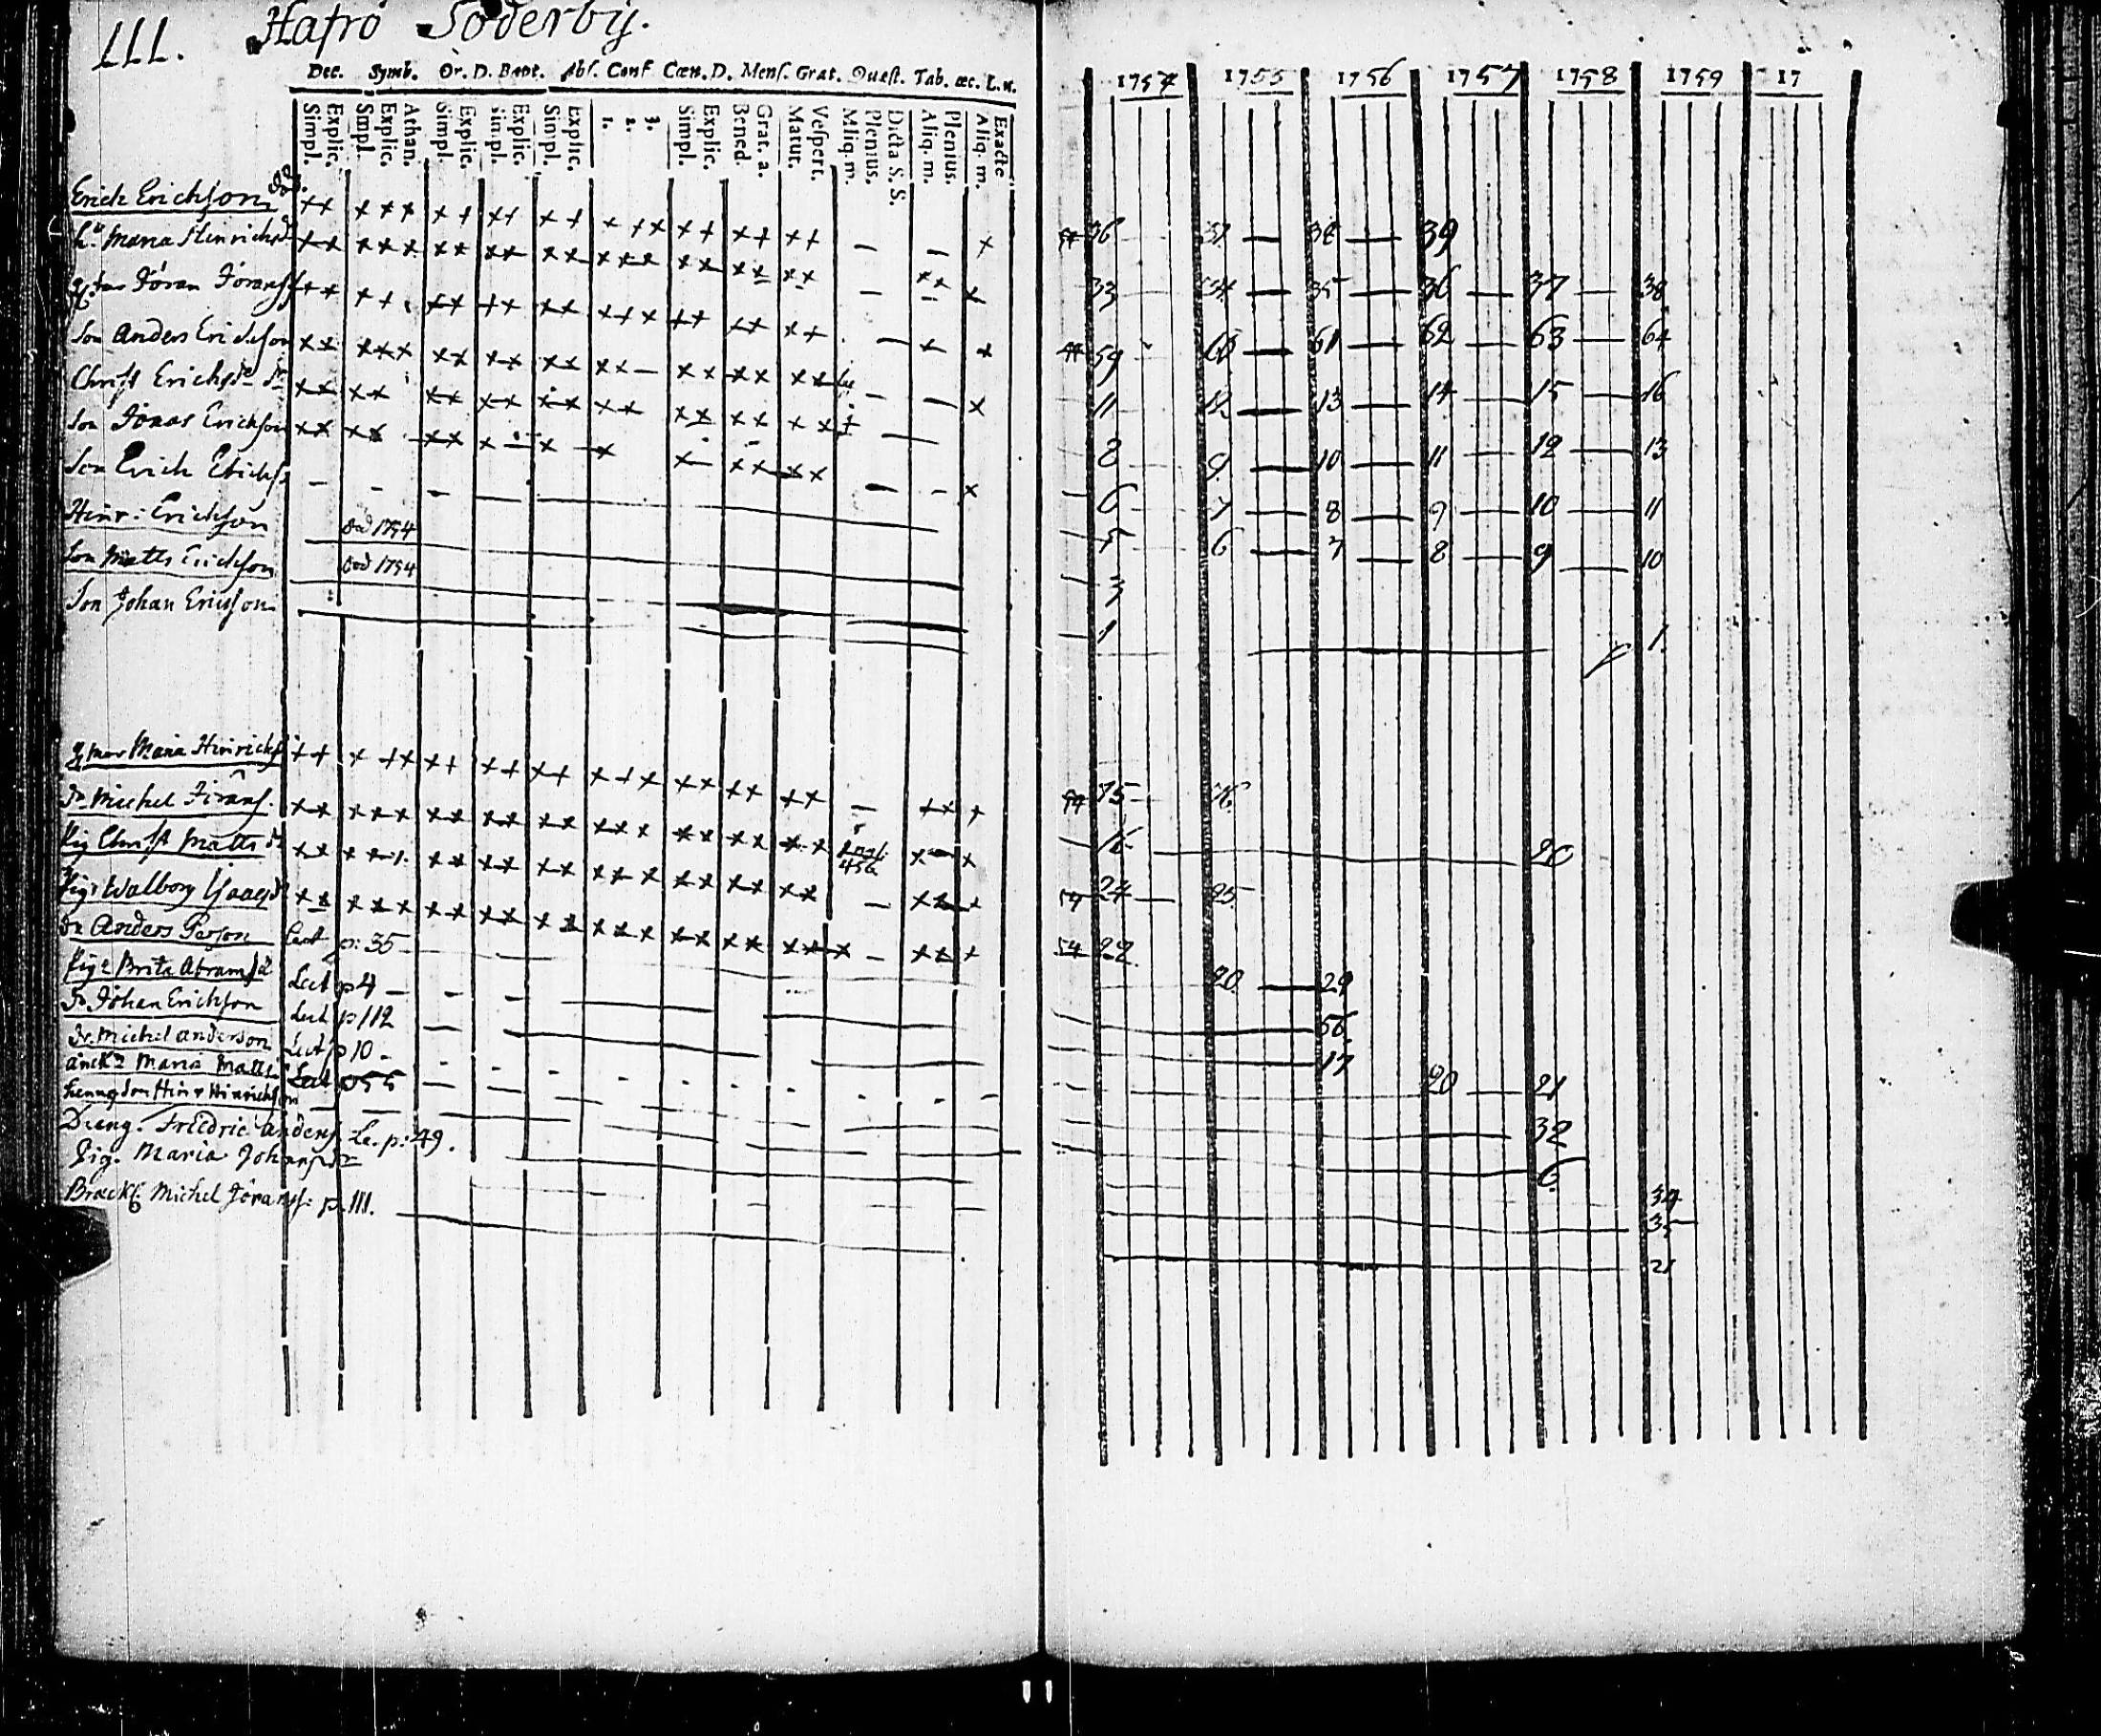 111. Hafrö Söderby.
Dec. Symb. Or. D. Bapt. Abs. Conf Cœn. D. Mens. Grat. Quæst. Tab. œc. L.n. 1754 1755 1756 1757 1758 1759 17
Simpl. Explic. Simpl. Explic. Athan. Simpl. Explic. Simpl. Explic. Simpl. Explic. 1. 2. 3. Simpl. Explic. Bened. Grat. a. Matut. Vespert. Aliq. m. Plenius. Dicta S. S. Aliq. m. Plenius. Aliq. m. Exacte
Erick Erichson 36 37 38 39
h:u Maria Hinrichsd 33 34 35 36 37 38
Jöran Jöranss 59 60 61 62 63 64
Son Anders Erickson 11 12 13 14 15 16
Christ Erichsdr 8 9 10 11 12 13
Son Jonas Erickson 6 7 8 9 10 11
Son Erich Erichss 5 6 7 8 9 10
Hinr: Erichson död 1754 3
Son Matts Erichson död 1754 1
Son Johan Ericsson 1.
mor Maria Hinrichsd 75 76
Dr Michel Jörans. 16 20
Pig Christ Matts dr 456 24 25
Pig: Walborg Isaacsd 54 22
Dr Anders Person Lect p: 35 20 29
Pig: Brita Abramsd Lect p 4 56
Dr Johan Erichson Lect p 112 17
Dr. Michel Anderson Lect p 10 20 21
Maria Matts Lect p 55 32
Son Hinr Hinrichson 6
Dreng. Friedric Anders Le. p: 49. 34
Pig. Maria Johansdr 3
Michel Jörans: p. 111. 21